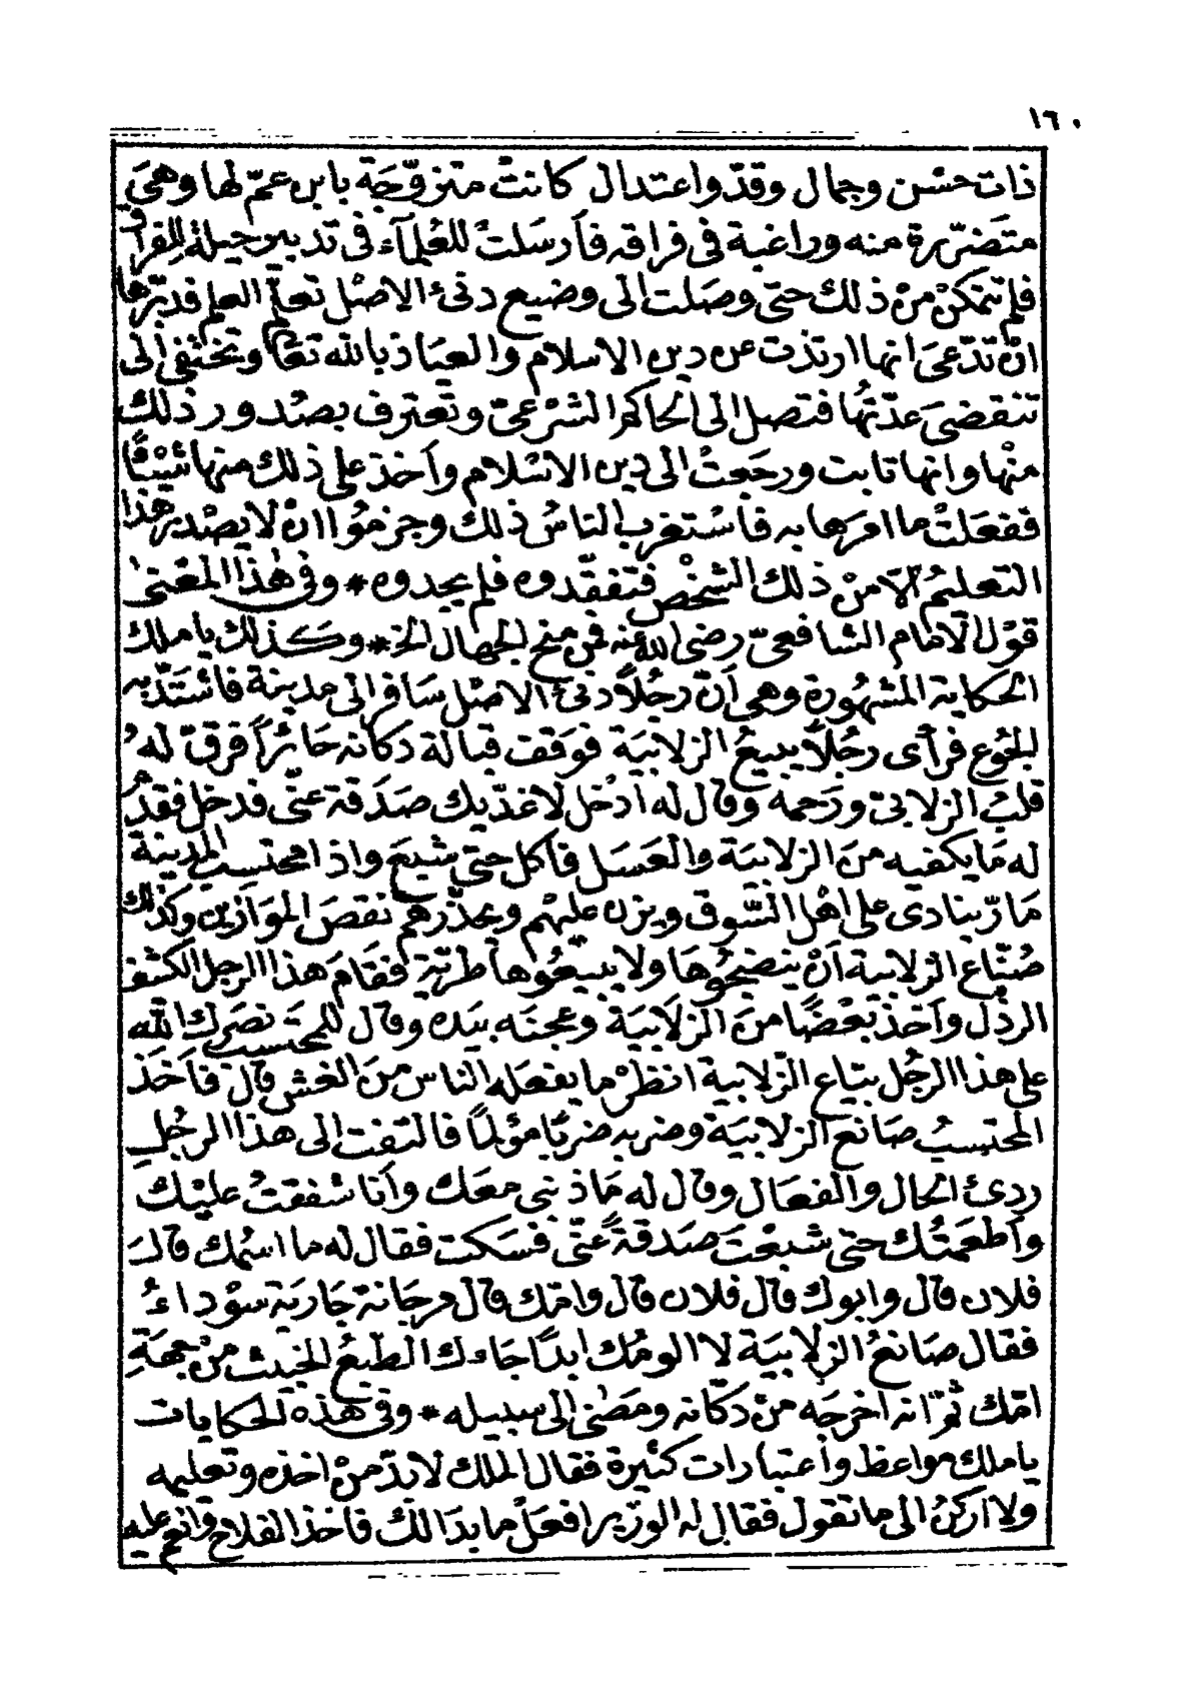 ١٦٠
ذات حسْن وجمال وقدّ واعتدال كانتْ متزوّجَة بابن عمّ لها وهيَ
متَضرّرة منه وراغبة فى فراقه فأرسَلتْ للعُلمآء فى تدبير حيلة للِفراق
فلم تتمكنْ منْ ذلك حتى وصَلت الى وضيع دنىء الاصْل تعلم العلم فدبّرها
انْ تدّعىَ انها ارتدّت عن دين الاسلام والعيَاذ بالله تعالى وتختفى الى
تنقضىَ عدّتُها فتصل الى الحاكم الشرْعىّ وتعترف بصُدور ذلك
منْها وانها تابت ورجَعتْ الى دين الاسْلام وأخذ على ذلك منها شيْئًا
ففعَلتْ ما امرَها به فأسْتغرب الناسُ ذلك وجزمُوا انْ لا يصْدر هذا
التعليمُ الّا منْ ذلك الشخْص فتفقّدوه فلم يجدوه * وفى هٰذا المعْنىٰ
قوْل الامام الشافعىّ رضى الله عنه فمن منح الجهال الخ * وكذلك يا ملك
الحكاية المشهُورة وهى أنّ رجُلاً دنىء الاصْل سَافر الى مدينة فاشتَدّ به
الجوُع فرأى رجُلاً يبيعُ الزلابيَة فوَقف قبالة دكانه حَائراً فرقّ لهُ
قلبُ الزلابىّ ورَحمه وقال له ادْخل لاغدّيك صَدَقة عنّى فدخل فقدّمُ
له مَا يكفيه منَ الزلابيَة والعَسَل فأكل حتى شبعَ واذا محتسب المدينة
مَارّ ينادى على اهْل السّوق ويزن عليْهم ويحذّرهم نقصَ الموَازين وكذلك
صُنّاع الزلابية أنْ ينضجُوهَا ولا يبيعُوها طريّة فقامَ هذا الرجل الكثيف
الرذل وأخذ بَعْضًا منَ الزلَابيَة وعجنَه بيَده وقال للمحتسب نصَرك الله
على هذا الرجُل بيّاع الزلابية انظرْ ما يفعَله الناس منَ الغش قالَ فأخَذ
المحتسبُ صَانعَ الزلابيَة وضرَبه ضربًا مؤلمًا فالتفت الى هذا الرجُلِ
ردىء الحال والفعَال وقال له مَاذنبى معَك وأنا شفقتُ عليْك
وأطعمتُك حتى شبعْتَ صَدقةً عنّى فسَكت فقال له ما اسْمك قالَ
فلان قال وابوك قال فلان قال وامّك قال مرجَانة جَارية سوْداءُ
فقال صَانعُ الزلابيَة لا الومُك ابدًا جَاءك الطبعُ الخبيث منْ جهَةِ
امّك ثمّ انه اخرجَه منْ دكّانه ومَضٰى الى سبيله * وفى هٰذه الحكايات
يا ملك مواعظ وأعتبارات كثيرة فقال الملك لابدّ منْ اخذه وتعليمه
ولا اركنُ الى ما تقول فقال له الوزير افعَلْ ما بدَا لكَ فأخذ الفلاح وانعم عليه